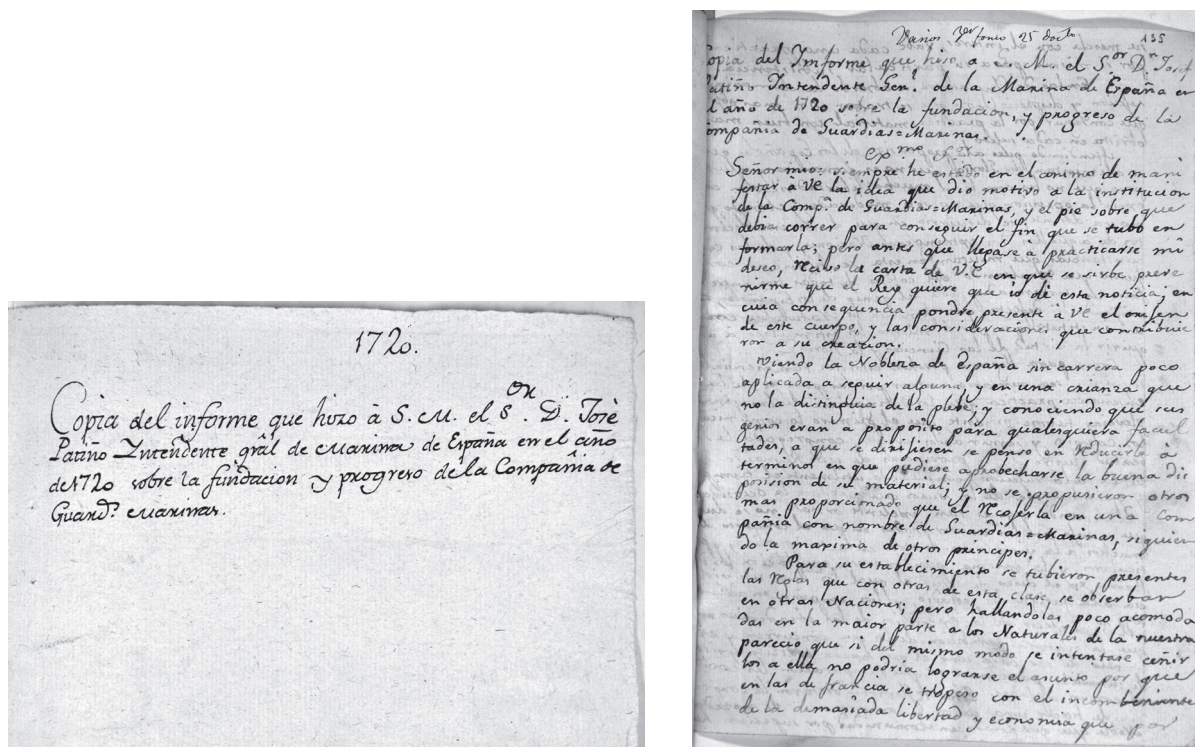 1720.
Copia del informe que hizo à S. M. el S.ᵒʳ D. Josè
Patiño Yntendente gṙal de Marina de España en el año
de 1720 sobre la fundacion y progreso de la Compañia de
Guard.ˢ Marinas.
Varios 25 135
opia del Imforme que hiso, a s. M. el S.ᵒʳ D.ⁿ Josef
Patiño Intendente Gen.ˡ de la Marina de España en
l año de 1720 sobre la fundacion, y progreso de la
ompañia de Guardias=Marinas.
Exᵐᵒ Sᵒʳ
Señor mio: siempre he estado en el animo de mani
festar à VE la idea que dio motivo a la institucion
de la Comp.ᵃ de Guardias=Marinas, y el pie sobre que
debia correr para conseguir el fin que se tubo en
formarla; pero antes que llegase à practicarse mi
deseo, Reciso la carta de V.E en que se sirbe preve
nirme que el Rey quiere que io dè esta noticia; en
cuia consequencia pondre presente à VE el orixen
de este cuerpo, y las consideraciones que contribuie
ron a su creazion.
Viendo la Nobleza de España sin carrera poco
aplicada a seguir alguna, y en una crianza que
no la distinguia de la plebe; y conociendo que sus
genios eran a proposito para qualesquiera facul
tades, a que se dirijiesen se penso en Reducirla à
terminos en que pudiese aprobecharse la buena dis
posicion de su material; y no se propusieron otros
mas proporcionado que el Recoserla en una Com
pañia con nombre de Guardias=Marinas, siguien
do la maxima de otros principes.
Para su establecimiento se tubieron presentes
las Reglas que con otras de esta clase se observan
en otras Naciones; pero hallandolas poco acomoda
das en la maior parte a los Naturales de la nuestra
parecio que si del mismo modo se intentase ceñir
los a ella no podria lograrse el asunto por que
en las de francia se tropeso con el incombeniente
de la demasiada libertad y economia que por